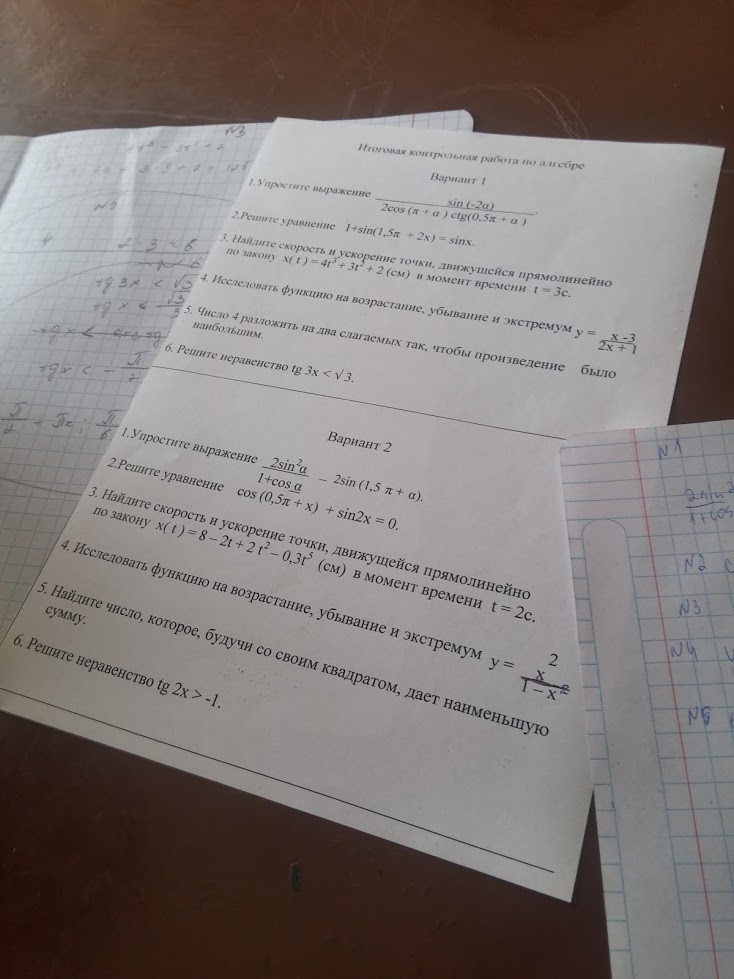 Итоговая контрольная работа по алгебре
Вариант 1
1.Упростите выражение sin (-2α) / 2cos (π + α) ctg(0,5π + α).
2.Решите уравнение 1+sin(1,5π + 2x) = sinx.
3. Найдите скорость и ускорение точки, движущейся прямолинейно
по закону x( t ) = 4t³ + 3t² + 2 (см) в момент времени t = 3с.
4. Исследовать функцию на возрастание, убывание и экстремум y = x -3 / 2x + 1
5. Число 4 разложить на два слагаемых так, чтобы произведение было
наибольшим.
6. Решите неравенство tg 3x < √3.
Вариант 2
1.Упростите выражение 2sin²α / 1+cos α – 2sin (1,5 π + α).
2.Решите уравнение cos (0,5π + x) + sin2x = 0.
3. Найдите скорость и ускорение точки, движущейся прямолинейно
по закону x( t ) = 8 – 2t + 2 t² – 0,3t⁵ (см) в момент времени t = 2с.
4. Исследовать функцию на возрастание, убывание и экстремум y = x² / 1 – x²
5. Найдите число, которое, будучи со своим квадратом, дает наименьшую
сумму.
6. Решите неравенство tg 2x > -1.
N3
N5
4
2 · 3 = 6
tg 3x < √3
tg x < √3 / 3
tg x < – π
N1
2sin²
1+cos
N2
N3
N4
N6